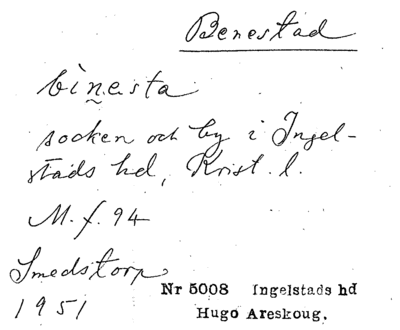 Benestad
bìn̰esta
socken och by i Ingel-
stads hd, Krist. l.
M. f. 94
Smedstorp
1951
Nr 5008 Ingelstads hd
Hugo Areskoug.